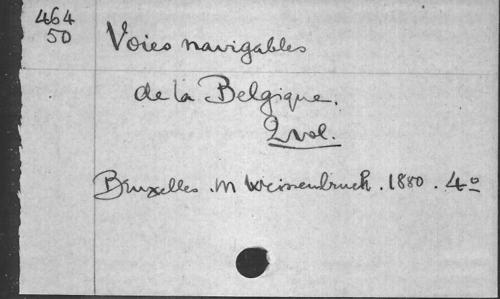 464
50
Voies navigables
de la Belgique.
2 vol.
Bruxelles. M Weissenbruch. 1880. 4º